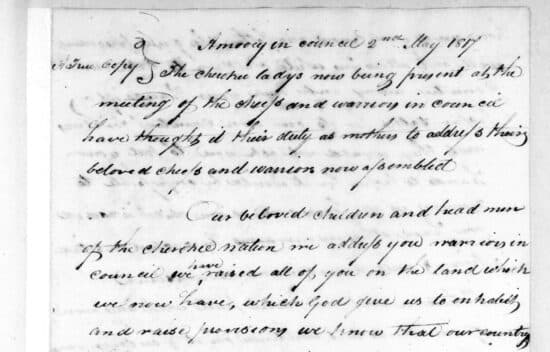 Amoovey in council 2nd May 1817
A True Copy
The cherokee ladys now being present at the
meeting of the chiefs and warriors in council
have thought it their duty as mothers to address their
beloved chiefs and warriors now assembled
Our beloved children and head men
of the cherokee nation we address you warriors in
council we have raised all of you on the land which
we now have, which God gave us to inhabit
and raise provisions we know that our country